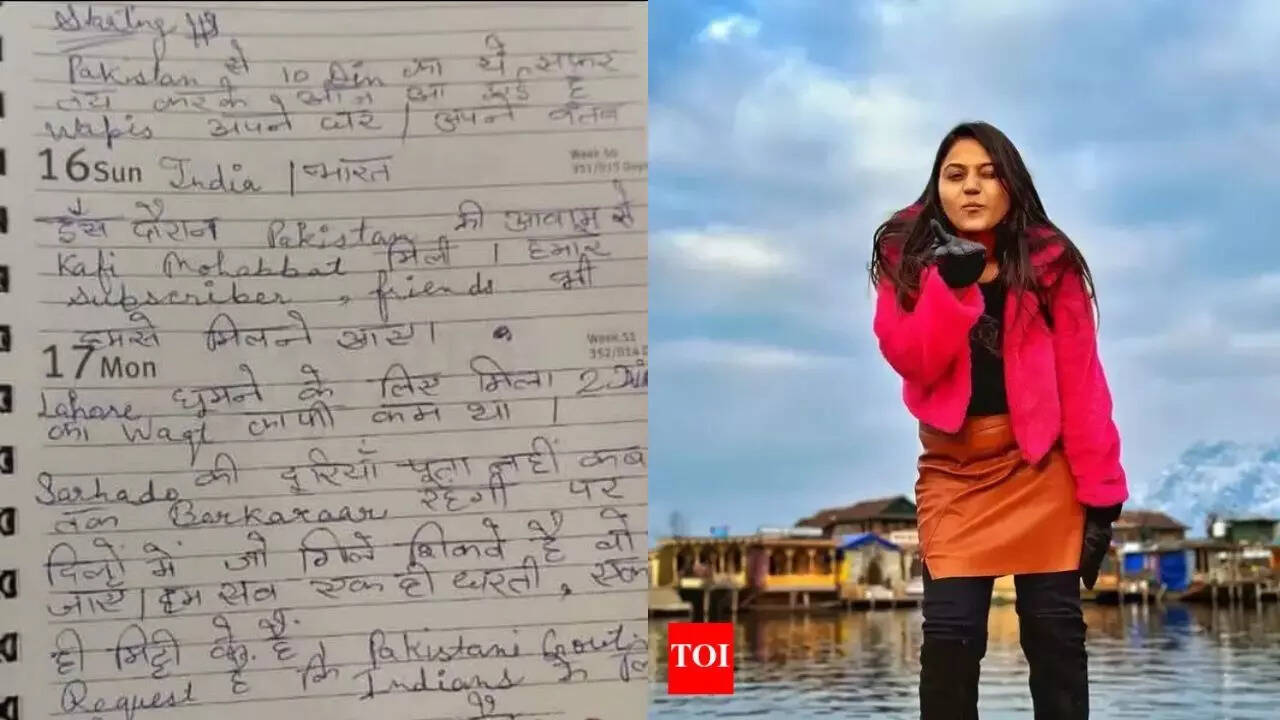 Starting
Pakistan से 10 Din का ये सफ़र
तय करके आज आ गई है
Wapis अपने घर | अपने वतन
16 Sun India | भारत
Week 50
इस दौरान Pakistan की आवाम से
Kafi Mohabbat मिली | हमारे
subscriber, friends भी
हमसे मिलने आए।
17 Mon
Week 51
Lahore घूमने के लिए मिला 2 Din
का Waqt काफी कम था |
Sarhado की दूरियाँ पता नहीं कब
तक Barkaraar रहेगी पर
दिलों में जो गिले शिकवे है वो
जाए | हम सब एक ही धरती, एक
ही मिट्टी के है.
Pakistani Govt.
Request है कि Indians के
TOI